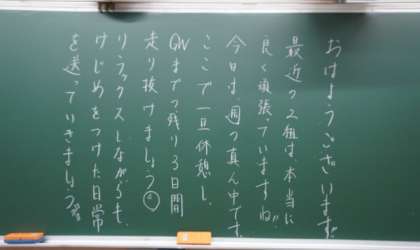 おはようございます。
最近の2組は、本当に
良く頑張っていますね!!
今日は、週の真ん中です。
ここで一旦休憩し、
GWまでの残り3日間
走り抜けましょう。
リラックスしながらも、
けじめをつけた日常
を送っていきましょう。